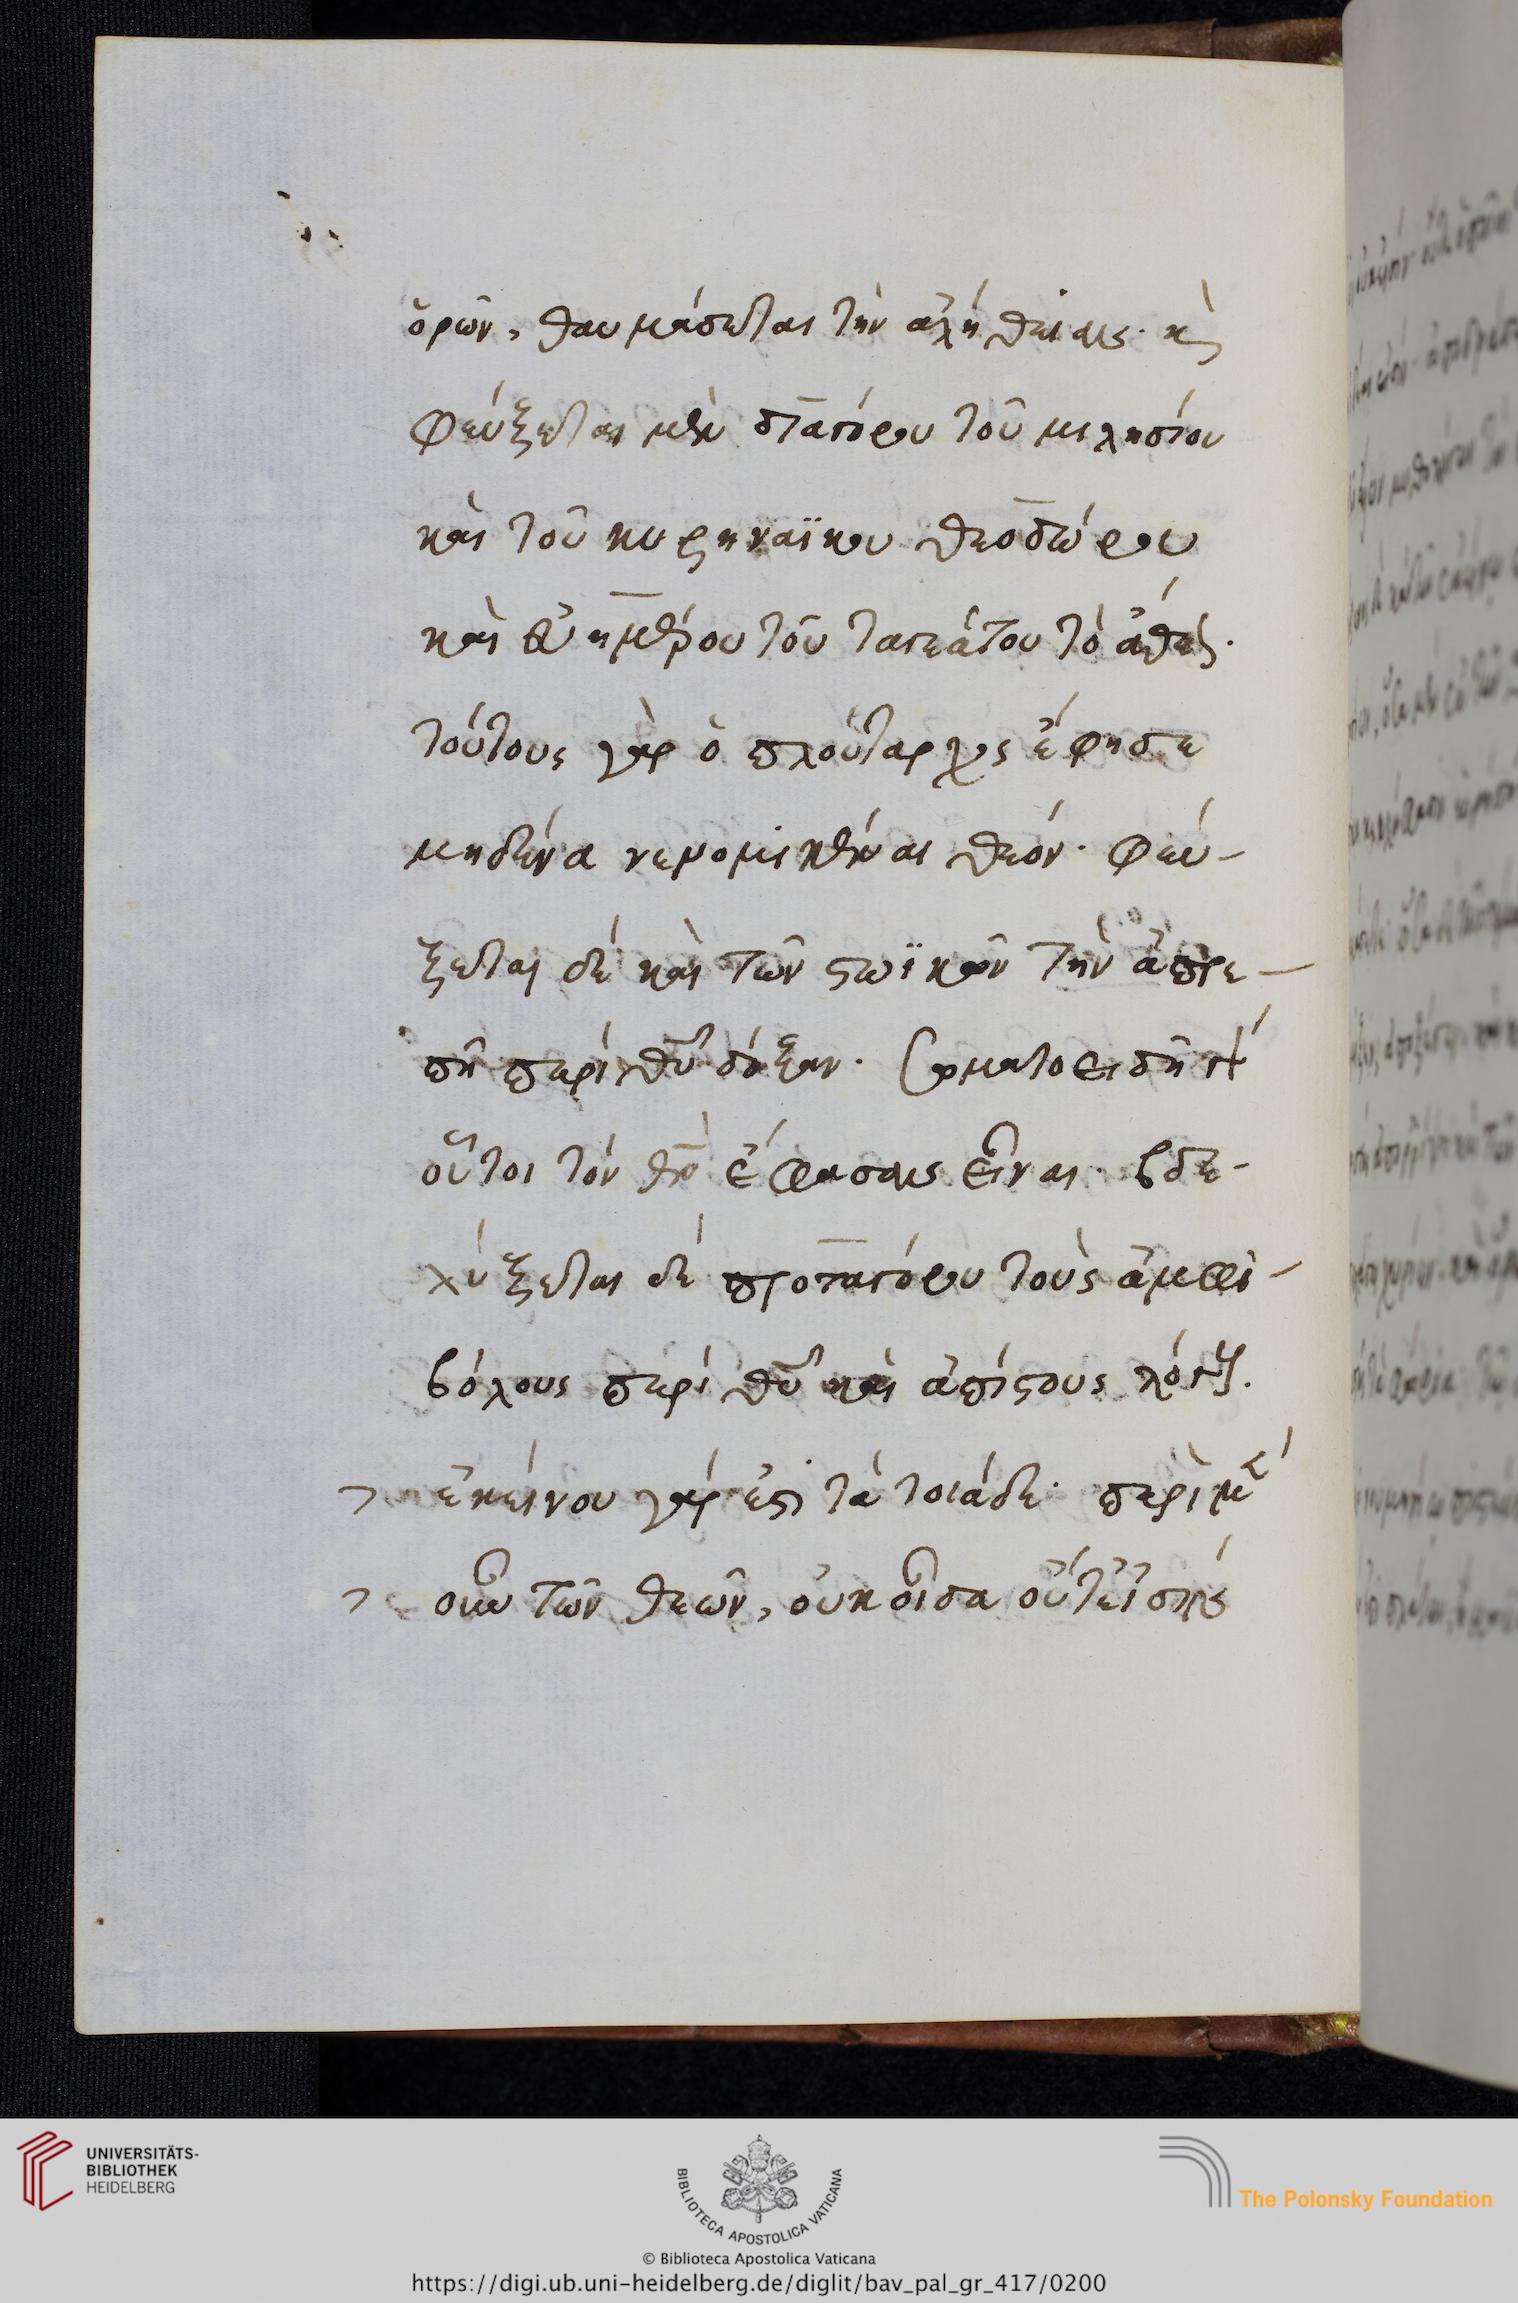 ὁρῶν, θαυμάσεται τὴν ἀλήθειαν· κὶ
φεύξεται μὲν διαγόρου τοῦ μιλησίου
καὶ τοῦ κυρηναϊκου θεοδώρου
καὶ εὐημέρου τοῦ τεγεάτου τὸ ἄθεον·
τούτους γὰρ ὁ πλούταρχος ἔφησε
μηδένα νενομικέναι θεόν· φεύ-
ξεται δὲ καὶ τῶν στωϊκῶν τὴν ἀπρε-
πῆ περὶ θυ δόξαν· σωματοειδῆ γὰρ
οὗτοι τὸν θν ἔφασαν εἶναι· βδε-
λύξεται δὲ πρωταγόρου τοὺς ἀμφι-
βόλους περὶ θυ καὶ ἀπίστους λόγους.
ἐκείνου γάρ ἐστι τὰ τοιάδε· περὶ μὲν
οὖν τῶν θεῶν, οὐκ οἶδα οὔτ' εἰ εἰσὶν
UNIVERSITÄTS-
BIBLIOTHEK
HEIDELBERG
BIBLIOTECA APOSTOLICA VATICANA
The Polonsky Foundation
© Biblioteca Apostolica Vaticana
https://digi.ub.uni-heidelberg.de/diglit/bav_pal_gr_417/0200